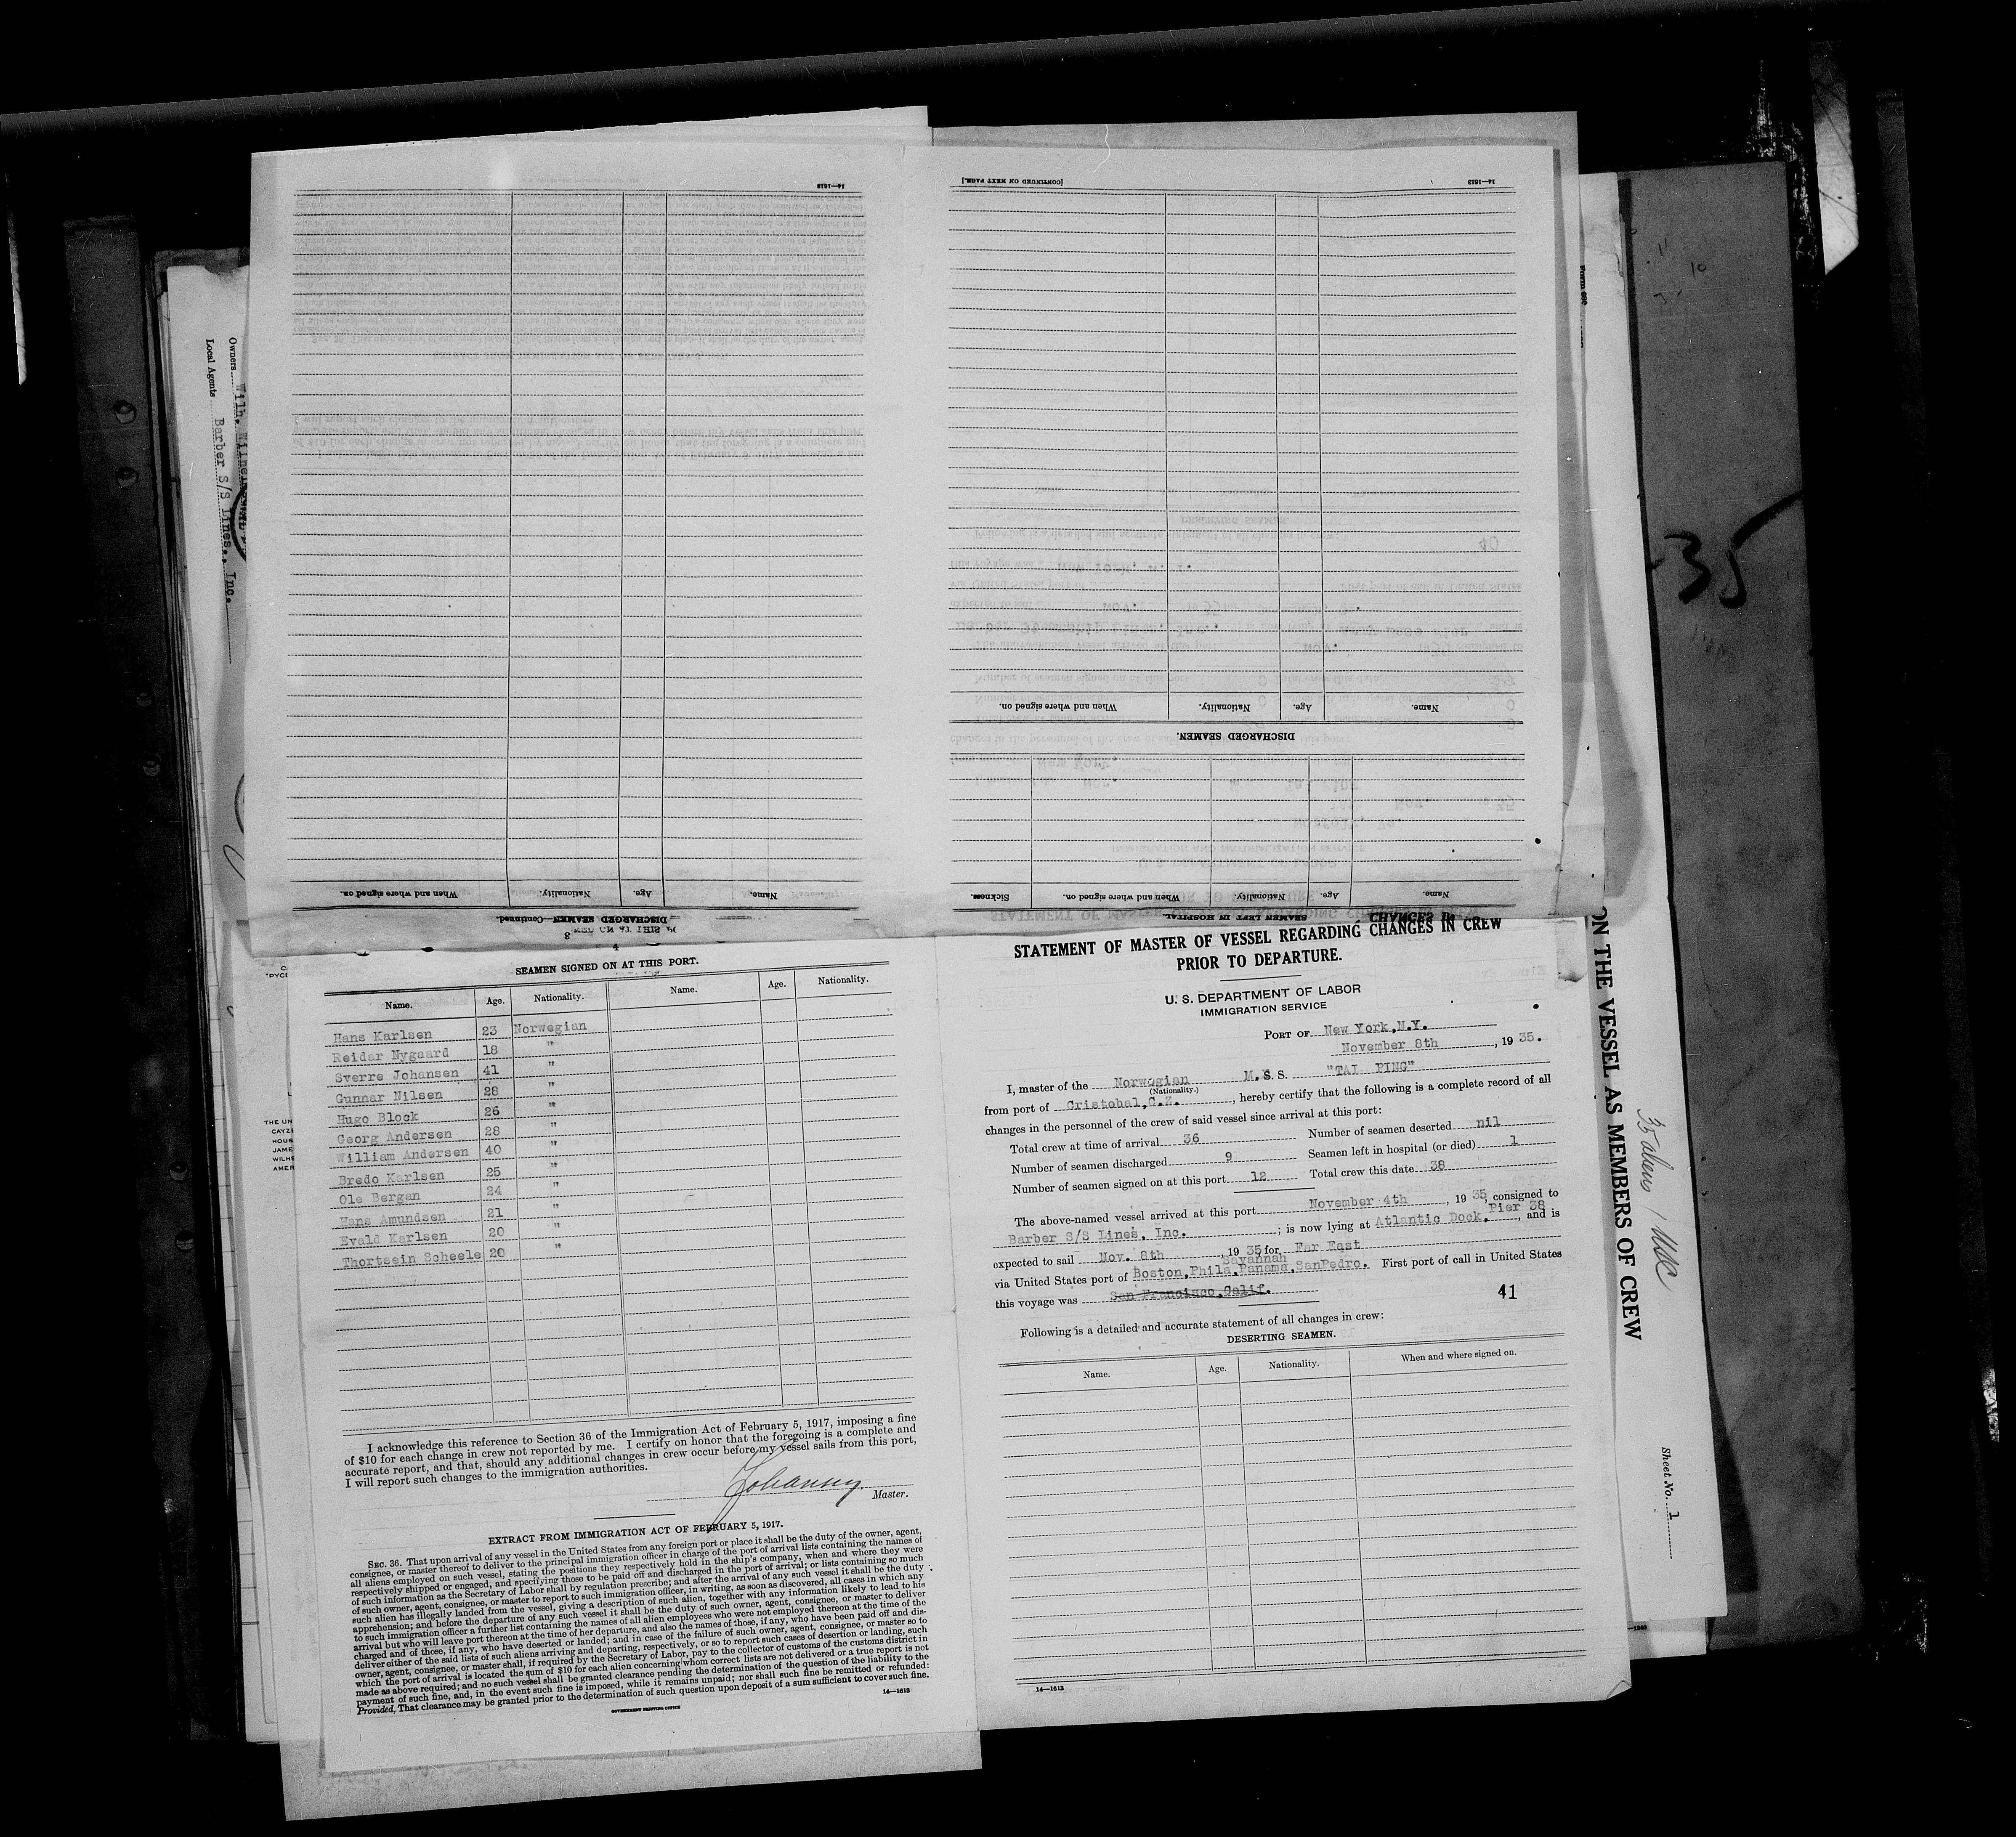 14—1613
[CONTINUED ON NEXT PAGE.]
14—1613
When and where signed on.
Nationality.
Age.
Name.
DISCHARGED SEAMEN.
Sickness.
When and where signed on.
Nationality.
Age.
Name.
SEAMEN LEFT IN HOSPITAL.
When and where signed on.
Nationality.
Age.
Name.
DISCHARGED SEAMEN—Continued.
3
Owners
Local Agents Barber S/S Lines., Inc.
35
4
SEAMEN SIGNED ON AT THIS PORT.
Name. Age. Nationality. Name. Age. Nationality.
Hans Karlsen 23 Norwegian
Reidar Nygaard 18 "
Sverre Johansen 41 "
Gunnar Nilsen 28 "
Hugo Block 26 "
Georg Andersen 28 "
William Andersen 40 "
Bredo Karlsen 25 "
Ole Bergan 24 "
Hans Amundsen 21 "
Evald Karlsen 20 "
Thortsein Scheele 20 "
I acknowledge this reference to Section 36 of the Immigration Act of February 5, 1917, imposing a fine
of $10 for each change in crew not reported by me. I certify on honor that the foregoing is a complete and
accurate report, and that, should any additional changes in crew occur before my vessel sails from this port,
I will report such changes to the immigration authorities.
Master.
EXTRACT FROM IMMIGRATION ACT OF FEBRUARY 5, 1917.
SEC. 36. That upon arrival of any vessel in the United States from any foreign port or place it shall be the duty of the owner, agent,
consignee, or master thereof to deliver to the principal immigration officer in charge of the port of arrival lists containing the names of
all aliens employed on such vessel, stating the positions they respectively hold in the ship's company, when and where they were
respectively shipped or engaged, and specifying those to be paid off and discharged in the port of arrival; or lists containing so much
of such information as the Secretary of Labor shall by regulation prescribe; and after the arrival of any such vessel it shall be the duty
of such owner, agent, consignee, or master to report to such immigration officer, in writing, as soon as discovered, all cases in which any
such alien has illegally landed from the vessel, giving a description of such alien, together with any information likely to lead to his
apprehension; and before the departure of any such vessel it shall be the duty of such owner, agent, consignee, or master to deliver
to such immigration officer a further list containing the names of all alien employees who were not employed thereon at the time of the
arrival but who will leave port thereon at the time of her departure, and also the names of those, if any, who have been paid off and dis-
charged and of those, if any, who have deserted or landed; and in case of the failure of such owner, agent, consignee, or master so to
deliver either of the said lists of such aliens arriving and departing, respectively, or so to report such cases of desertion or landing, such
owner, agent, consignee, or master shall, if required by the Secretary of Labor, pay to the collector of customs of the customs district in
which the port of arrival is located the sum of $10 for each alien concerning whom correct lists are not delivered or a true report is not
made as above required; and no such vessel shall be granted clearance pending the determination of the question of the liability to the
payment of such fine, and, in the event such fine is imposed, while it remains unpaid; nor shall such fine be remitted or refunded:
Provided, That clearance may be granted prior to the determination of such question upon deposit of a sum sufficient to cover such fine.
14—1613
GOVERNMENT PRINTING OFFICE
STATEMENT OF MASTER OF VESSEL REGARDING CHANGES IN CREW
PRIOR TO DEPARTURE.
U. S. DEPARTMENT OF LABOR
IMMIGRATION SERVICE
PORT OF New York, N.Y.
November 8th, 1935.
I, master of the Norwegian M.S. S. "TAI PING"
(Nationality.)
from port of Cristobal, C.Z., hereby certify that the following is a complete record of all
changes in the personnel of the crew of said vessel since arrival at this port:
Total crew at time of arrival 36 Number of seamen deserted nil
Number of seamen discharged 9 Seamen left in hospital (or died) 1
Number of seamen signed on at this port 12 Total crew this date 38
The above-named vessel arrived at this port November 4th, 1935, consigned to
Barber S/S Lines, Inc.; is now lying at Atlantic Dock, Pier 38, and is
expected to sail Nov. 8th, 1935 for Far East
Savannah
via United States port of Boston, Phila, Panama, SanPedro. First port of call in United States
this voyage was San Francisco, Calif.
41
Following is a detailed and accurate statement of all changes in crew:
DESERTING SEAMEN.
Name. Age. Nationality. When and where signed on.
14—1613
ON THE VESSEL AS MEMBERS OF CREW
35 aliens
Sheet No. 1